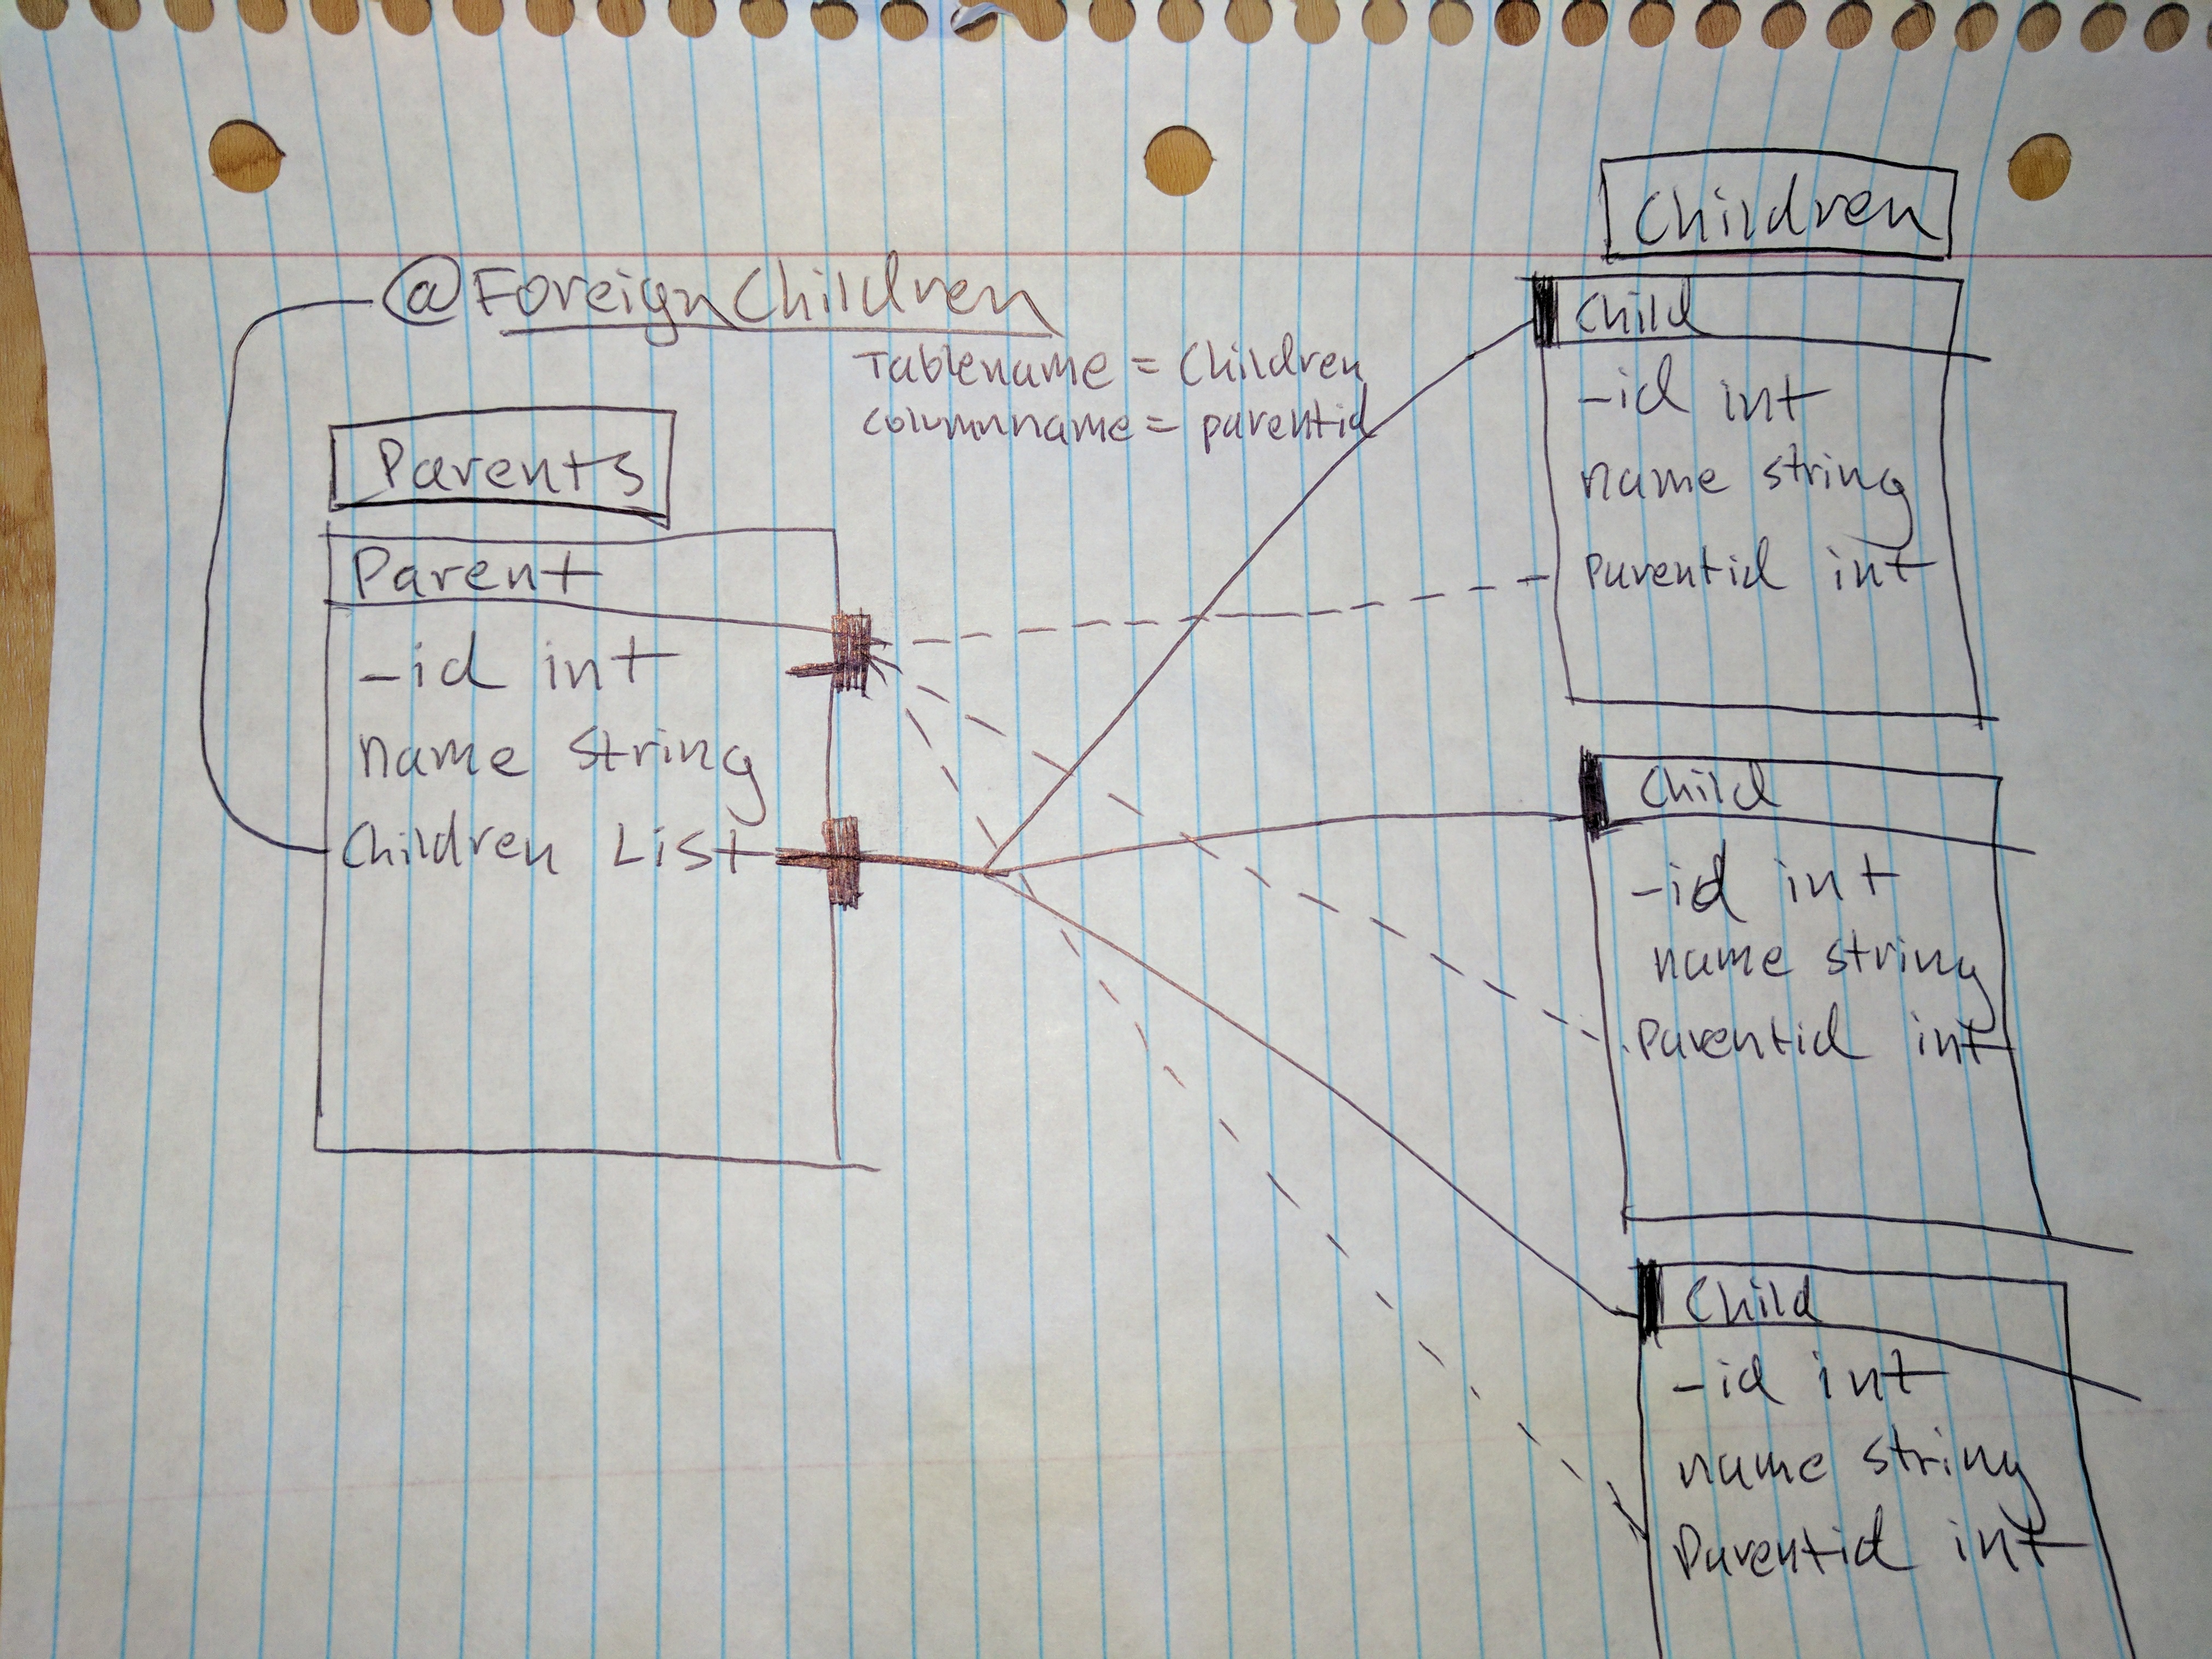 @ForeignChildren
Tablename = Children
columnname = parentid
Parents
Parent
-id int
name string
Children List
Children
Child
-id int
name string
Parentid int
Child
-id int
name string
Parentid int
Child
-id int
name string
Parentid int